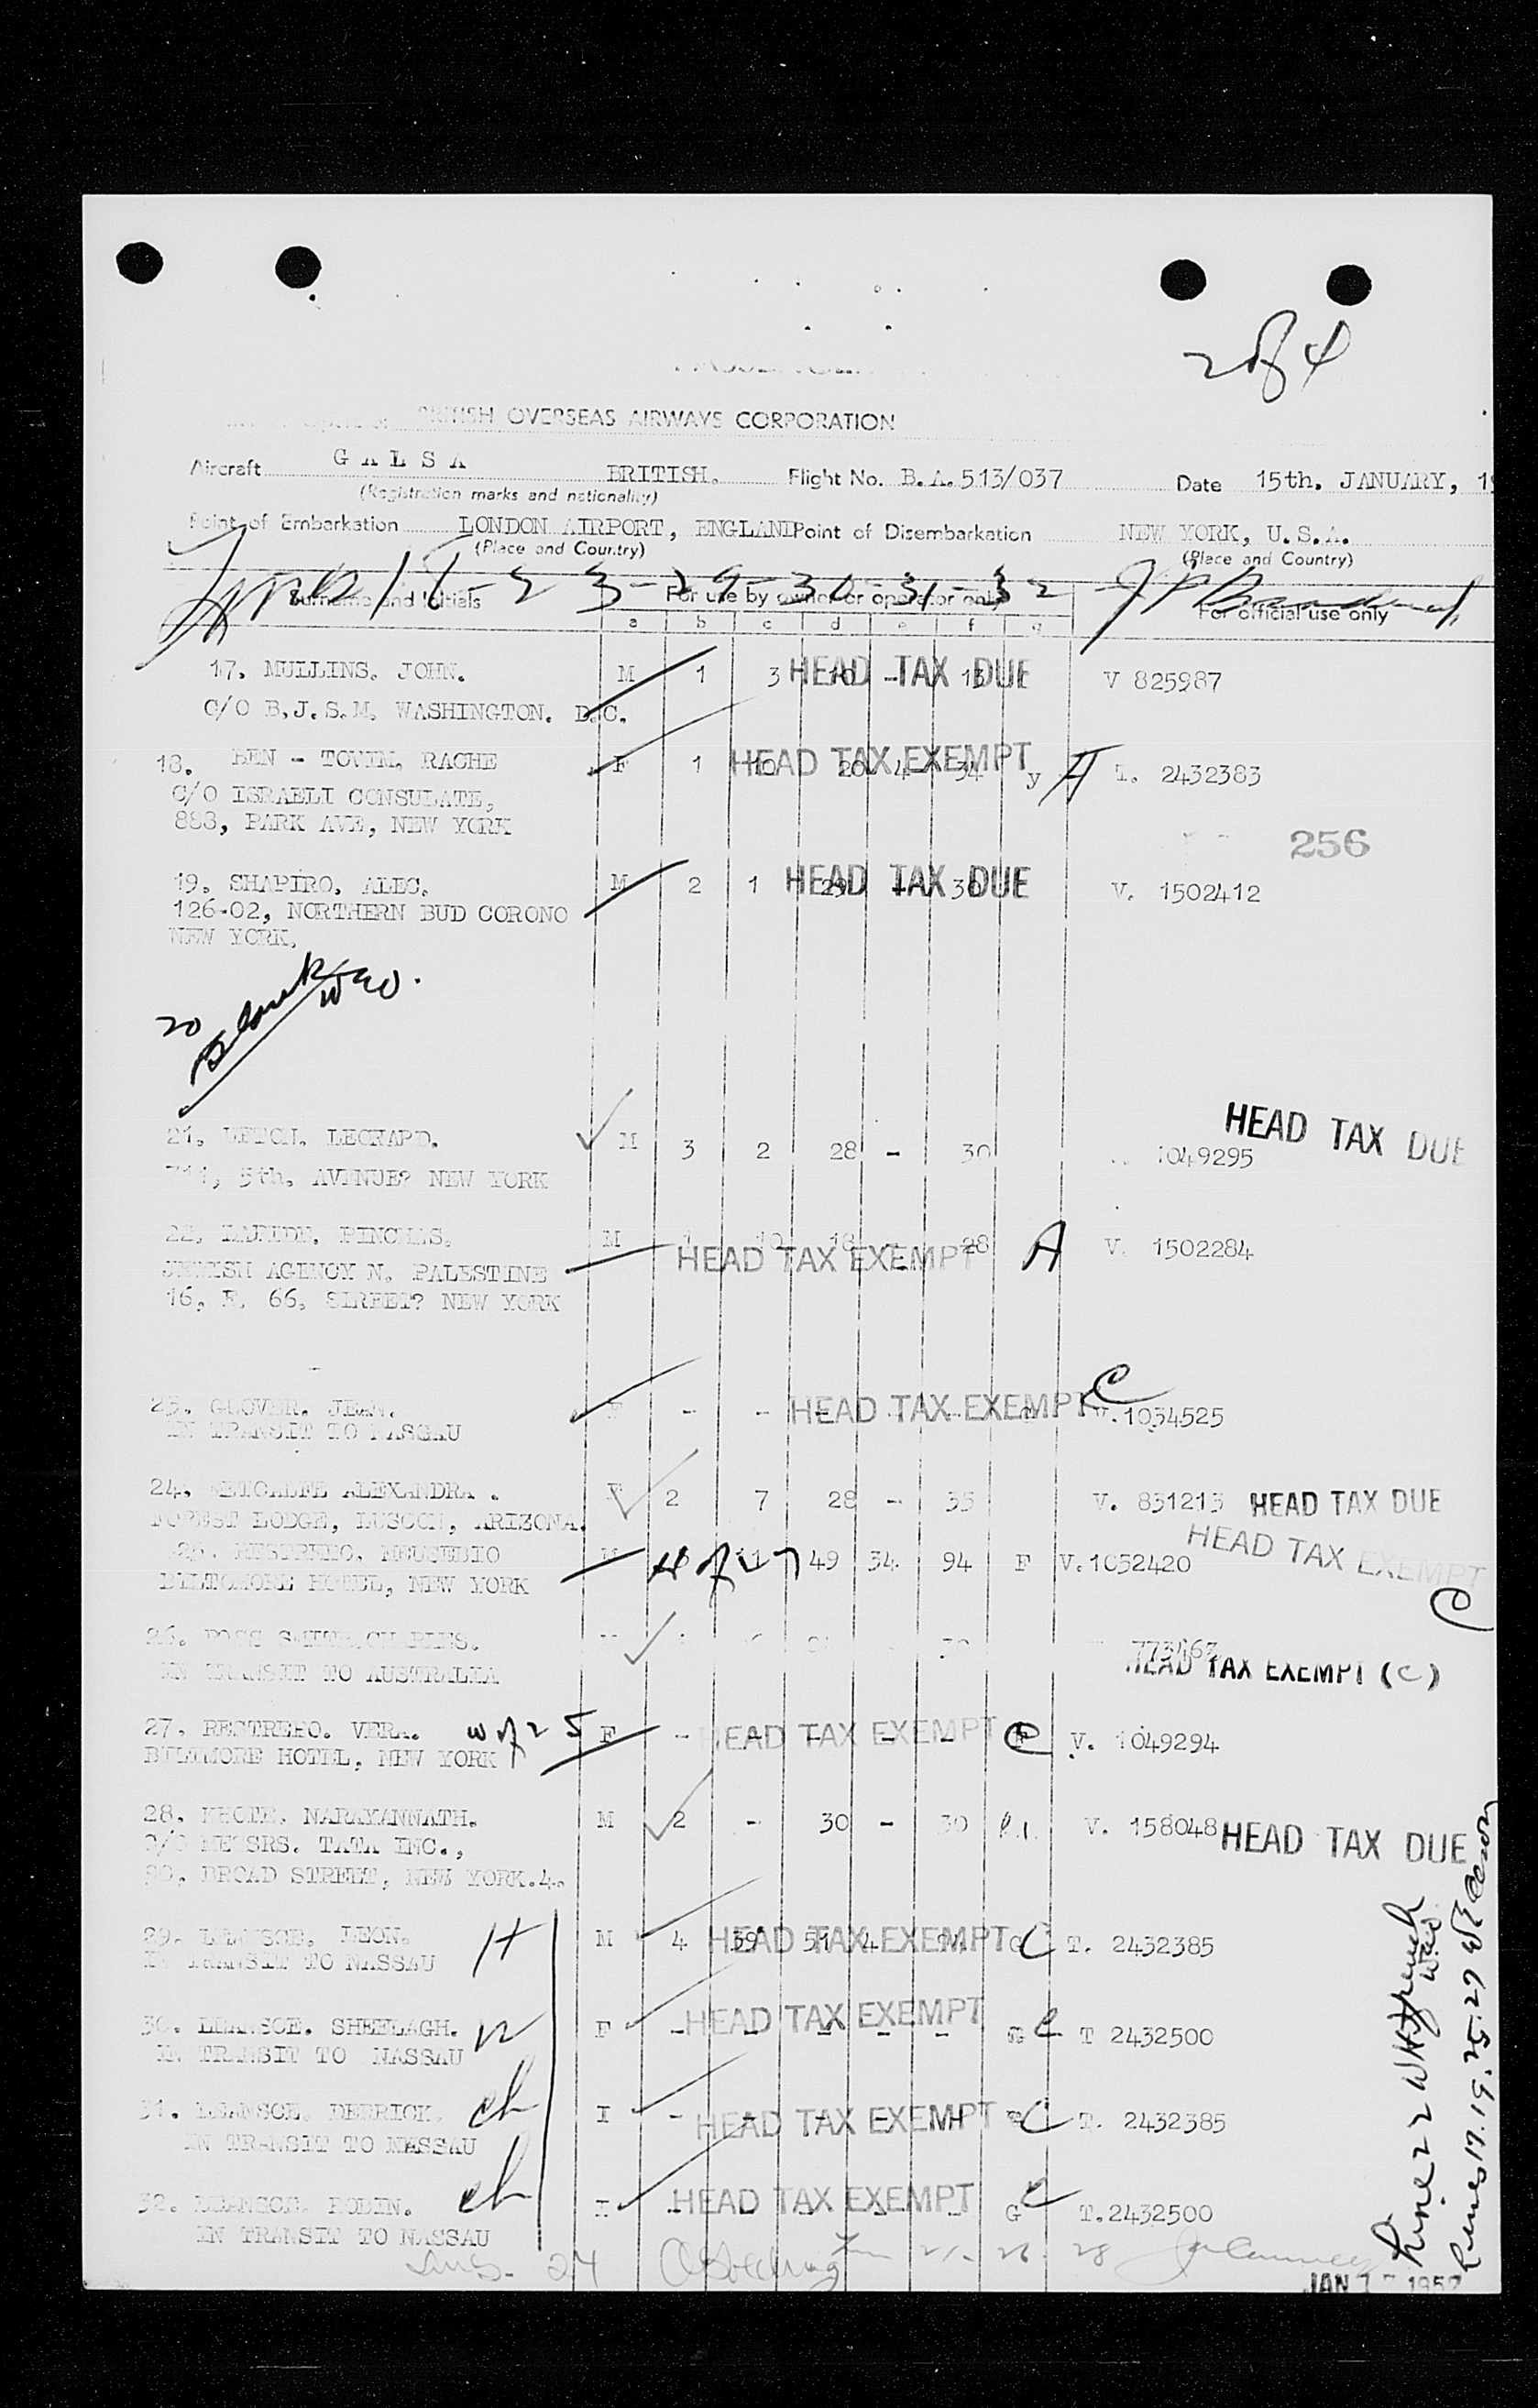 2 of 4
BRITISH OVERSEAS AIRWAYS CORPORATION
Aircraft G A L S A BRITISH. Flight No. B.A.513/037 Date 15th. JANUARY, 19
(Registration marks and nationality)
Point of Embarkation LONDON AIRPORT, ENGLAND Point of Disembarkation NEW YORK, U.S.A.
(Place and Country) (Place and Country)
23-29-30-31-32
Surname and Initials For use by owner or operator only For official use only
a b c d e f g
17. MULLINS. JOHN. M 1 3 10 - 13 HEAD TAX DUE V 825987
C/O B.J.S.M. WASHINGTON. D.C.
18. BEN - TOVIM, RACHE F 1 10 20 4 34 HEAD TAX EXEMPT y A 2432383
C/O ISRAELI CONSULATE,
883, PARK AVE, NEW YORK
256
19. SHAPIRO, ALEC. M 2 1 29 - 30 HEAD TAX DUE V. 1502412
126-02, NORTHERN BUD CORONO
NEW YORK.
20 Blank
21. LEONARD. M 3 2 28 - 30 1049295 HEAD TAX DUE
711, 5th. AVENUE? NEW YORK
22. LAPIDE, PINCHAS. M 1 10 18 - 28 HEAD TAX EXEMPT A V. 1502284
JEWISH AGENCY N. PALESTINE
16, E. 66, SLREET? NEW YORK
23. GLOVER. JEAN. F - - - - - HEAD TAX EXEMPT C V.1034525
IN TRANSIT TO NASSAU
24. METCALFE ALEXANDRA . F 2 7 28 - 35 V. 831213 HEAD TAX DUE
FOREST LODGE, LUSCON, ARIZONA.
25. RESTREPO, M H of 27 11 49 34 94 F V.1052420 HEAD TAX EXEMPT
BILTOMORE HOTEL, NEW YORK C
26. ROSS SMITH.CHARLES. 773463
IN TRANSIT TO AUSTRALIA HEAD TAX EXEMPT (C)
27. RESTREPO. VERA. W of 25 F - - - - - HEAD TAX EXEMPT C V. 1049294
BILTMORE HOTEL, NEW YORK
28. KHOTE. NARAYANNATH. M 2 - 30 - 30 V. 158048 HEAD TAX DUE
C/O MESSRS. TATA INC.,
BROAD STREET, NEW YORK.4.
29. LEON. H M 4 39 51 4 HEAD TAX EXEMPT G C T. 2432385
IN TRANSIT TO NASSAU
30. SHEELAGH. W F - - - - - HEAD TAX EXEMPT G C T 2432500
IN TRANSIT TO NASSAU
31. DERRICK. ch I - - - - - HEAD TAX EXEMPT C T. 2432385
IN TRANSIT TO NASSAU
32. ROBIN. ch I - - - - - HEAD TAX EXEMPT G C T.2432500
IN TRANSIT TO NASSAU
24 21-26 28
JAN 1 1952
Line 22
Lines 17. 19. 25. 27